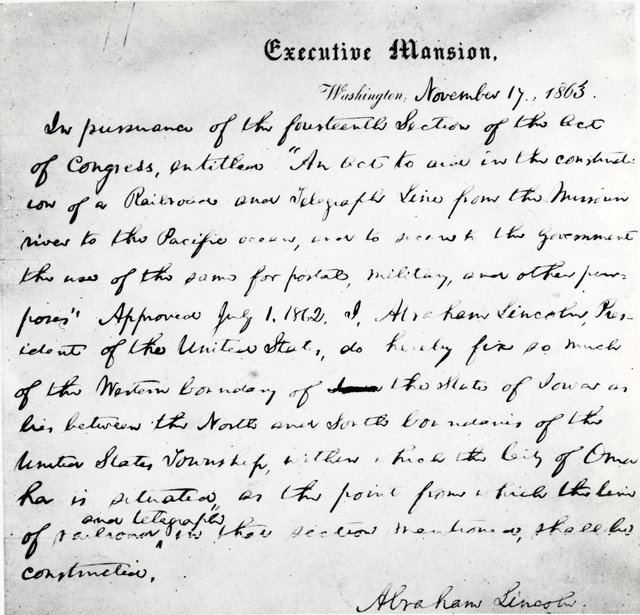 Executive Mansion,
Washington, November 17, 1863.
In pursuance of the fourteenth Section of the Act
of Congress, entitled "An Act to aid in the construct-
ion of a Railroad and Telegraph Line from the Missouri
river to the Pacific ocean, and to secure to the Government
the use of the same for postal, military, and other pur-
poses" Approved July 1, 1862, I, Abraham Lincoln, Pres-
ident of the United States, do hereby fix so much
of the Western boundary of the State of Iowa as
lies between the North and South boundaries of the
United States Township, within which the City of Oma-
ha is situated, as the point from which the line
of railroad and telegraph in that section mentioned, shall be
constructed.
Abraham Lincoln.